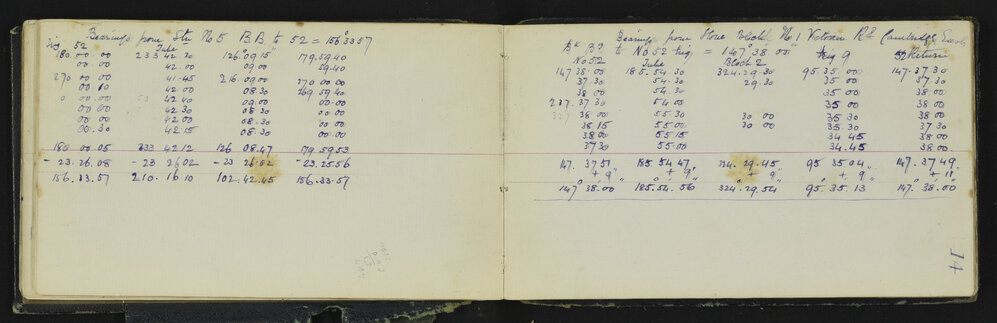 Bearings from Stn No 5 B.B. to 52 = 156° 33 57
Trig 52 Tube
180.00.00 233 42 30 126° 09 15" 179.59.40
00.00 42.00 09.00 59.40
270 00 00 41.45 216.09.00 270 00.00
00 00 42.00 08.30 269 59.40
0 00.00 42.40 09.00 00.00
00.00 42 30 08 30 00.00
00.00 42 00 08.30 00.00
00.30 42 15 08.30 00.00
180.00.05 233 42 12 126 08.47 179 59 53
- 23.26.08 - 23 26 02 - 23 26.02 - 23.25 56
156.33.57 210.16 10 102.42.45 156.33.57
Bearings from Stone Block No 1 Victoria Rd Cambridge
Bk B.J to No 52 trig = 147° 38' 00"
No 52 Tube Block 2 Trig 9 52 Return
147 38.00 185.54.30 324.29.30 95.35.00 147.37 30
37.30 54.30 29.30 35 00 37.30
38 00 54.30 35 00 38.00
237.37 30 54.00 35 00 38 00
327 38 00 55.30 30 00 35 30 38 00
38 15 55.00 30 00 35.30 37 30
38 00 55 15 34 45 38 00
37 30 55.00 34.45 38.00
147. 37 51" 185 54 47 324.29.45 95 35 04" 147.37 49"
+ 9" + 9" + 9" + 9" + 11"
147° 38.00 185.54.56 324.29.54 95.35.13 147.38.00
14